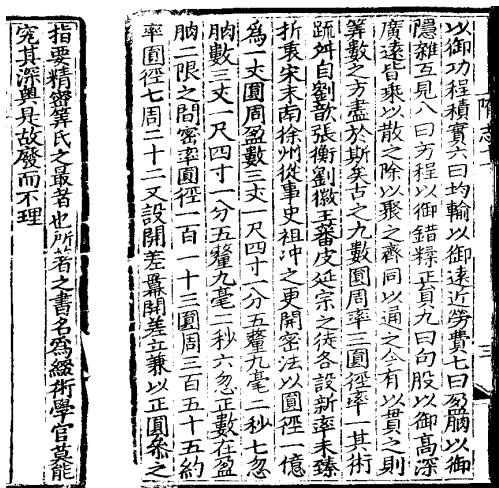 隋志十一
三
以御功程積實六曰均輸以御遠近勞費七曰盈朒以御
隱雜互見八曰方程以御錯糅正負九曰句股以御高深
廣遠皆乘以散之除以聚之齊同以通之今有以貫之則
筭數之方盡於斯矣古之九數圓周率三圓徑率一其術
疏舛自劉歆張衡劉徽王蕃皮延宗之徒各設新率未臻
折衷宋末南徐州從事史祖冲之更開密法以圓徑一億
爲一丈圓周盈數三丈一尺四寸一分五釐九毫二秒七忽
朒數三丈一尺四寸一分五釐九毫二秒六忽正數在盈
朒二限之間密率圓徑一百一十三圓周三百五十五約
率圓徑七周二十二又設開差冪開差立兼以正圓參之
指要精密筭氏之最者也所著之書名爲綴術學官莫能
究其深奥是故廢而不理